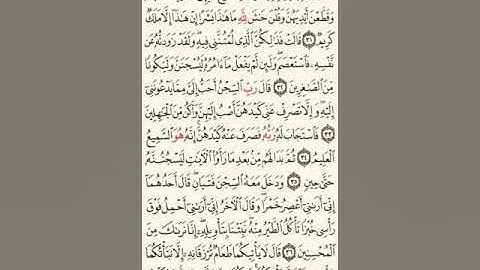 وَقَطَّعْنَ أَيْدِيَهُنَّ وَقُلْنَ حَٰشَ لِلَّهِ مَا هَٰذَا بَشَرًا إِنْ هَٰذَآ إِلَّا مَلَكٌ
كَرِيمٌ ٣١ قَالَتْ فَذَٰلِكُنَّ ٱلَّذِى لُمْتُنَّنِى فِيهِ وَلَقَدْ رَٰوَدتُّهُۥ عَن
نَّفْسِهِۦ فَٱسْتَعْصَمَ وَلَئِن لَّمْ يَفْعَلْ مَآ ءَامُرُهُۥ لَيُسْجَنَنَّ وَلَيَكُونًا
مِّنَ ٱلصَّٰغِرِينَ ٣٢ قَالَ رَبِّ ٱلسِّجْنُ أَحَبُّ إِلَىَّ مِمَّا يَدْعُونَنِىٓ
إِلَيْهِ وَإِلَّا تَصْرِفْ عَنِّى كَيْدَهُنَّ أَصْبُ إِلَيْهِنَّ وَأَكُن مِّنَ ٱلْجَٰهِلِينَ
٣٣ فَٱسْتَجَابَ لَهُۥ رَبُّهُۥ فَصَرَفَ عَنْهُ كَيْدَهُنَّ إِنَّهُۥ هُوَ ٱلسَّمِيعُ
ٱلْعَلِيمُ ٣٤ ثُمَّ بَدَا لَهُم مِّنۢ بَعْدِ مَا رَأَوُا۟ ٱلْءَايَٰتِ لَيَسْجُنُنَّهُۥ
حَتَّىٰ حِينٍ ٣٥ وَدَخَلَ مَعَهُ ٱلسِّجْنَ فَتَيَانِ قَالَ أَحَدُهُمَآ
إِنِّىٓ أَرَىٰنِىٓ أَعْصِرُ خَمْرًا وَقَالَ ٱلْءَاخَرُ إِنِّىٓ أَرَىٰنِىٓ أَحْمِلُ فَوْقَ
رَأْسِى خُبْزًا تَأْكُلُ ٱلطَّيْرُ مِنْهُ نَبِّئْنَا بِتَأْوِيلِهِۦٓ إِنَّا نَرَىٰكَ مِنَ
ٱلْمُحْسِنِينَ ٣٦ قَالَ لَا يَأْتِيكُمَا طَعَامٌ تُرْزَقَانِهِۦٓ إِلَّا نَبَّأْتُكُمَا